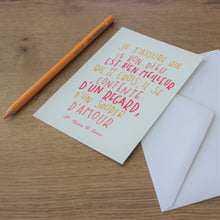 JE T'ASSURE QUE
LE BON DIEU
EST BIEN MEILLEUR
QUE TU CROIS. IL SE
CONTENTE
D'UN REGARD,
D'UN SOUPIR
D'AMOUR